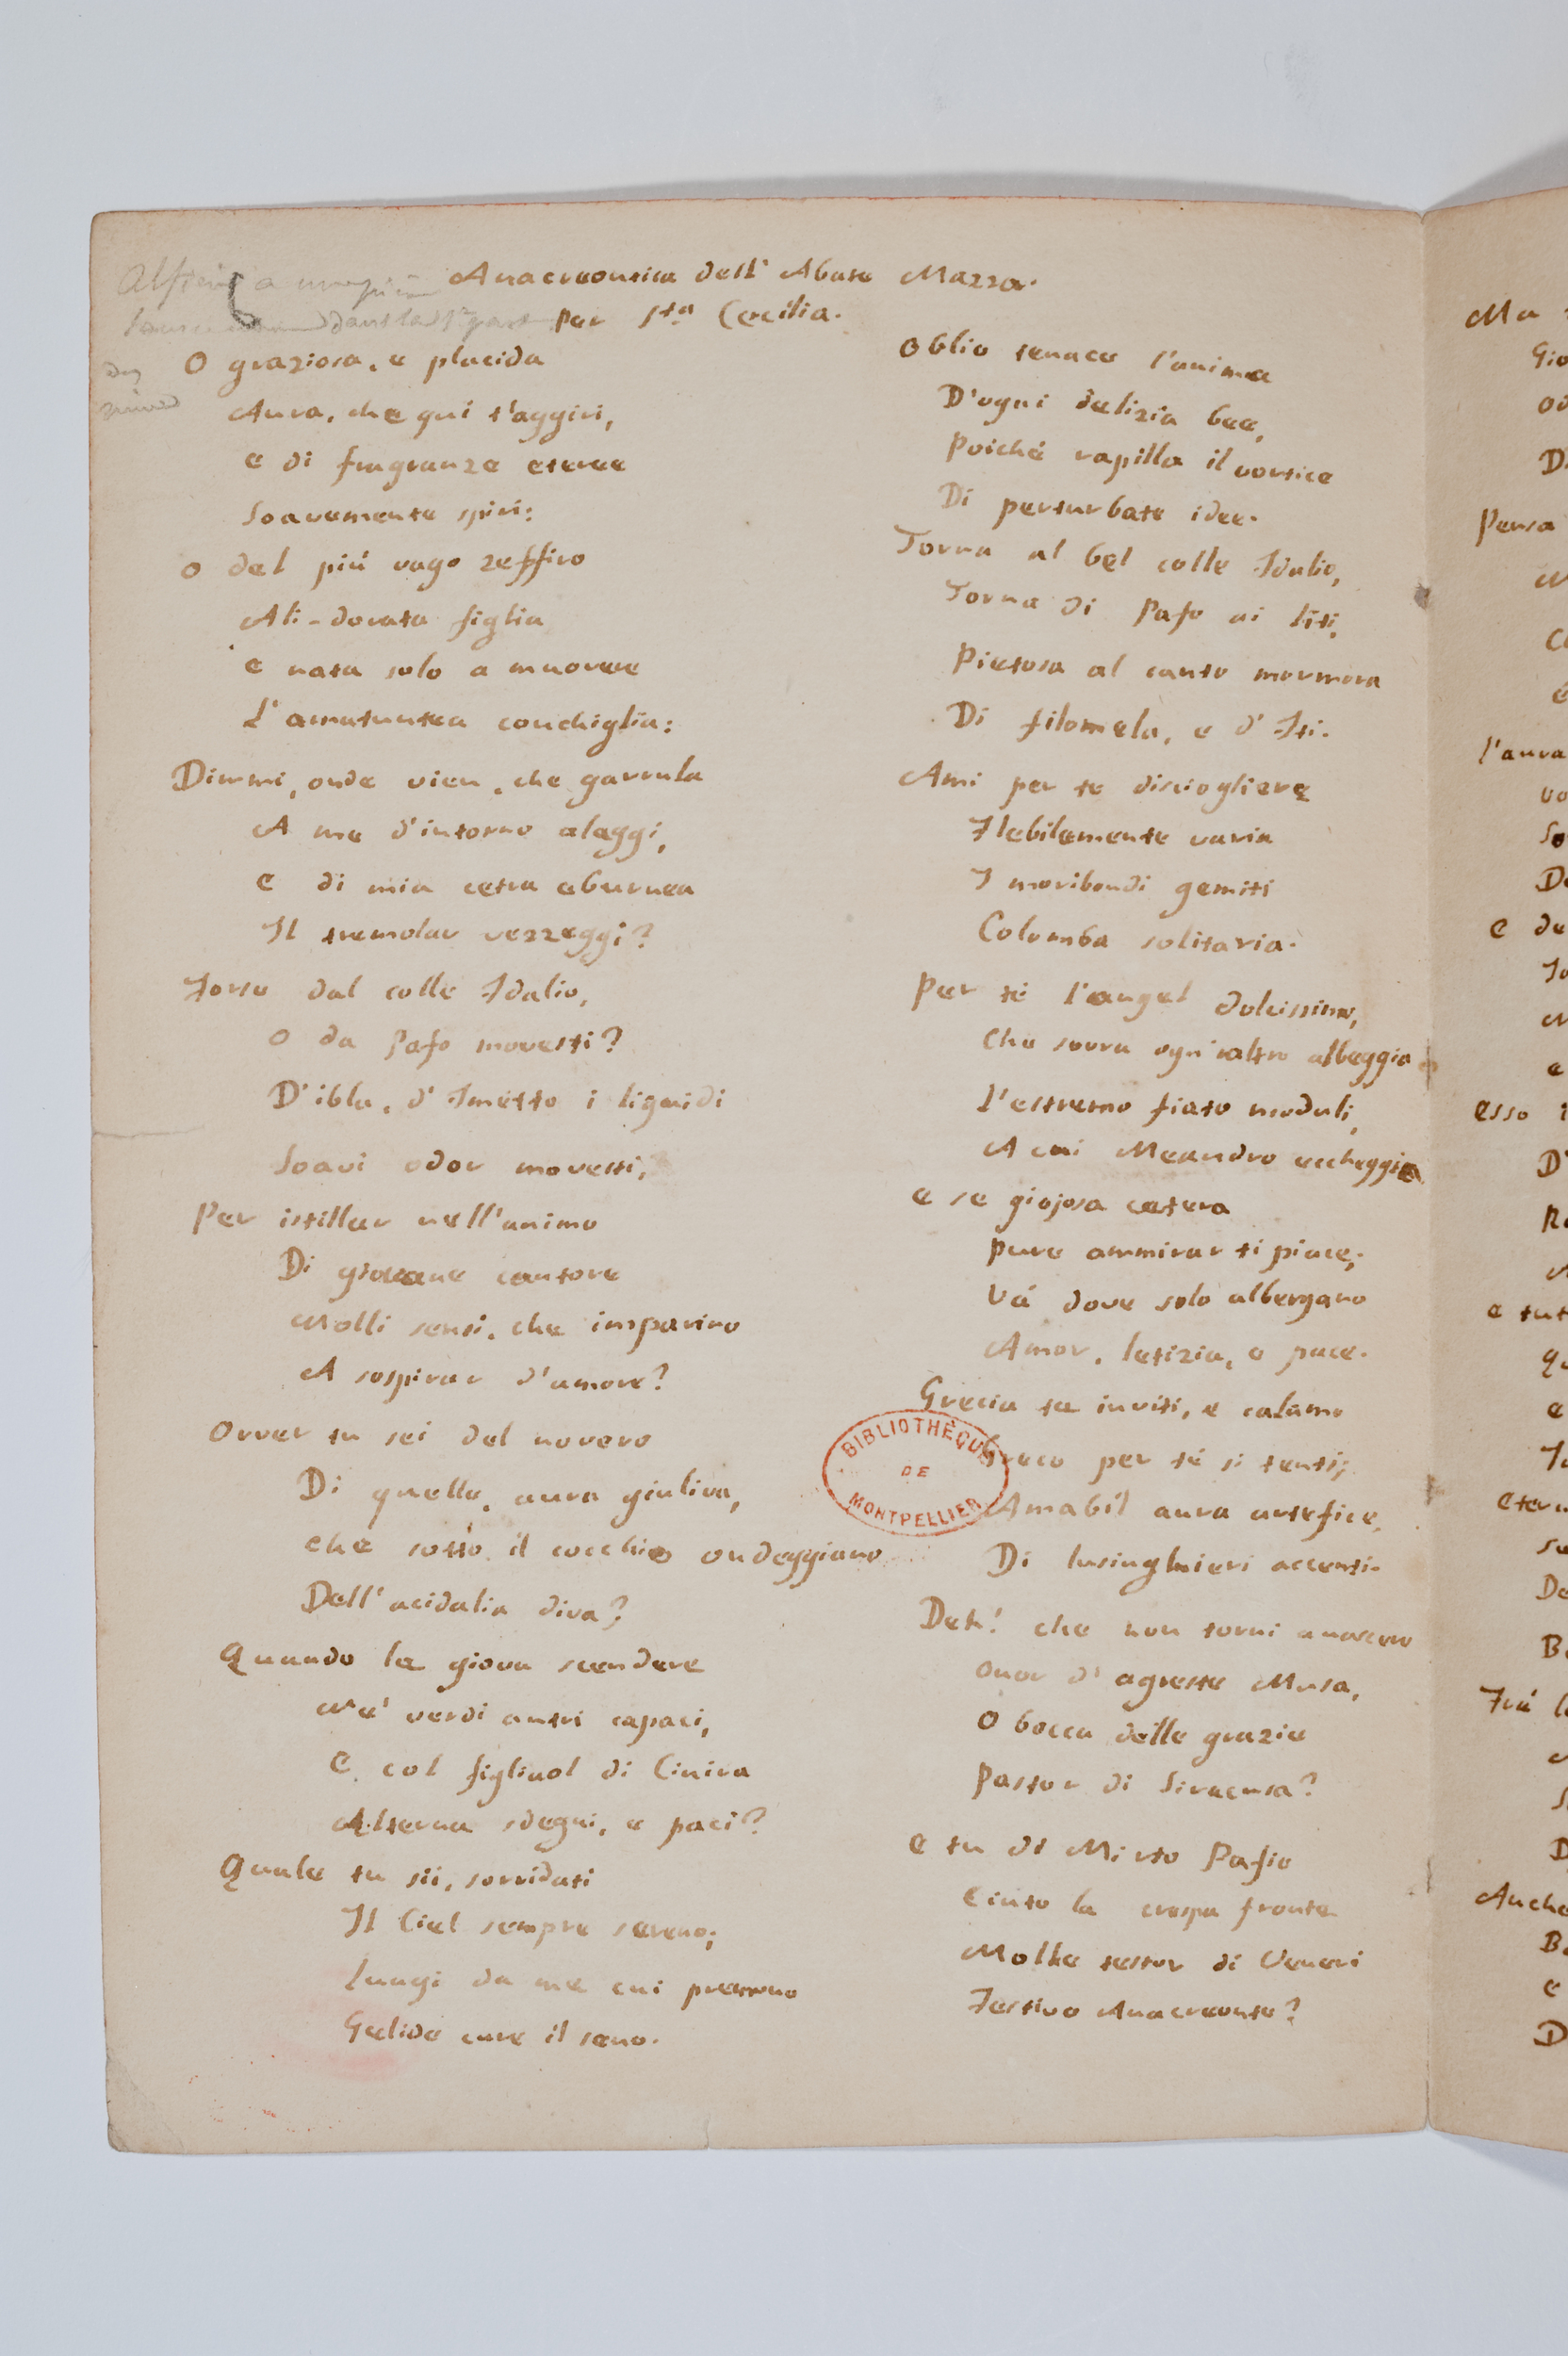 Alfieri a
dans la 1re part
Anacreontica dell' Abate Mazza.
per Sta Cecilia.
O graziosa, e placida
Aura, che qui t'aggiri,
e di fragranze eteree
Soavemente spiri:
O del più vago zeffiro
Ali-dorata figlia
e nata solo a muovere
L'amatuntea conchiglia:
Dimmi, onde vien, che garrula
A me d'intorno aleggi,
e di mia cetra eburnea
Il tremolar vezzeggi?
Forse dal colle Idalio,
O da Pafo movesti?
D'ibla, d'Imetto i liquidi
Soavi odor movesti,
Per istillar nell'animo
Di giovane cantore
Molli sensi, che imparino
A sospirar d'amore?
Ovver tu sei del novero
Di quelle, aura giuliva,
che sotto il cocchio ondeggiano
Dell'acidalia diva?
Quando le giova scendere
Ne' verdi antri capaci,
E col figliuol di Cinira
Alterna sdegni, e paci?
Quale tu sii, sorridati
Il Ciel sempre sereno;
Lungi da me cui premono
Gelide cure il seno.
Oblio tenace l'anima
D'ogni delizia bee,
Poiché rapilla il vortice
Di perturbate idee.
Torna al bel colle Idalio,
Torna di Pafo ai liti,
Pietosa al canto mormora
Di filomela, e d'Iti.
Ami per te disciogliere
Flebilemente varia
I moribondi gemiti
Colomba solitaria.
Per té l'augel dolcissimo,
Che sovra ogn'altro albeggia
L'estremo fiato moduli,
A cui Meandro eccheggia
e se giojosa cetera
pure ammirar ti piace,
Vá dove solo albergano
Amor, letizia, e pace.
Grecia te inviti, e calamo
Greco per té si tenti;
Amabil aura artefice,
Di lusinghieri accenti.
Deh! che non torni a nascere
Onor d'agreste Musa,
O bocca delle grazie
Pastor di Siracusa?
e tu di Mirto Pafio
Cinto la crespa fronte
Molle testor di Veneri
Festivo Anacreonte?
BIBLIOTHÈQUE
DE
MONTPELLIER
Ma
Gio
Di
Pensa
l'aura
So
De
e de
e
esso i
D'
e tut
e
Eter
De
Frá l
Anche
e
D